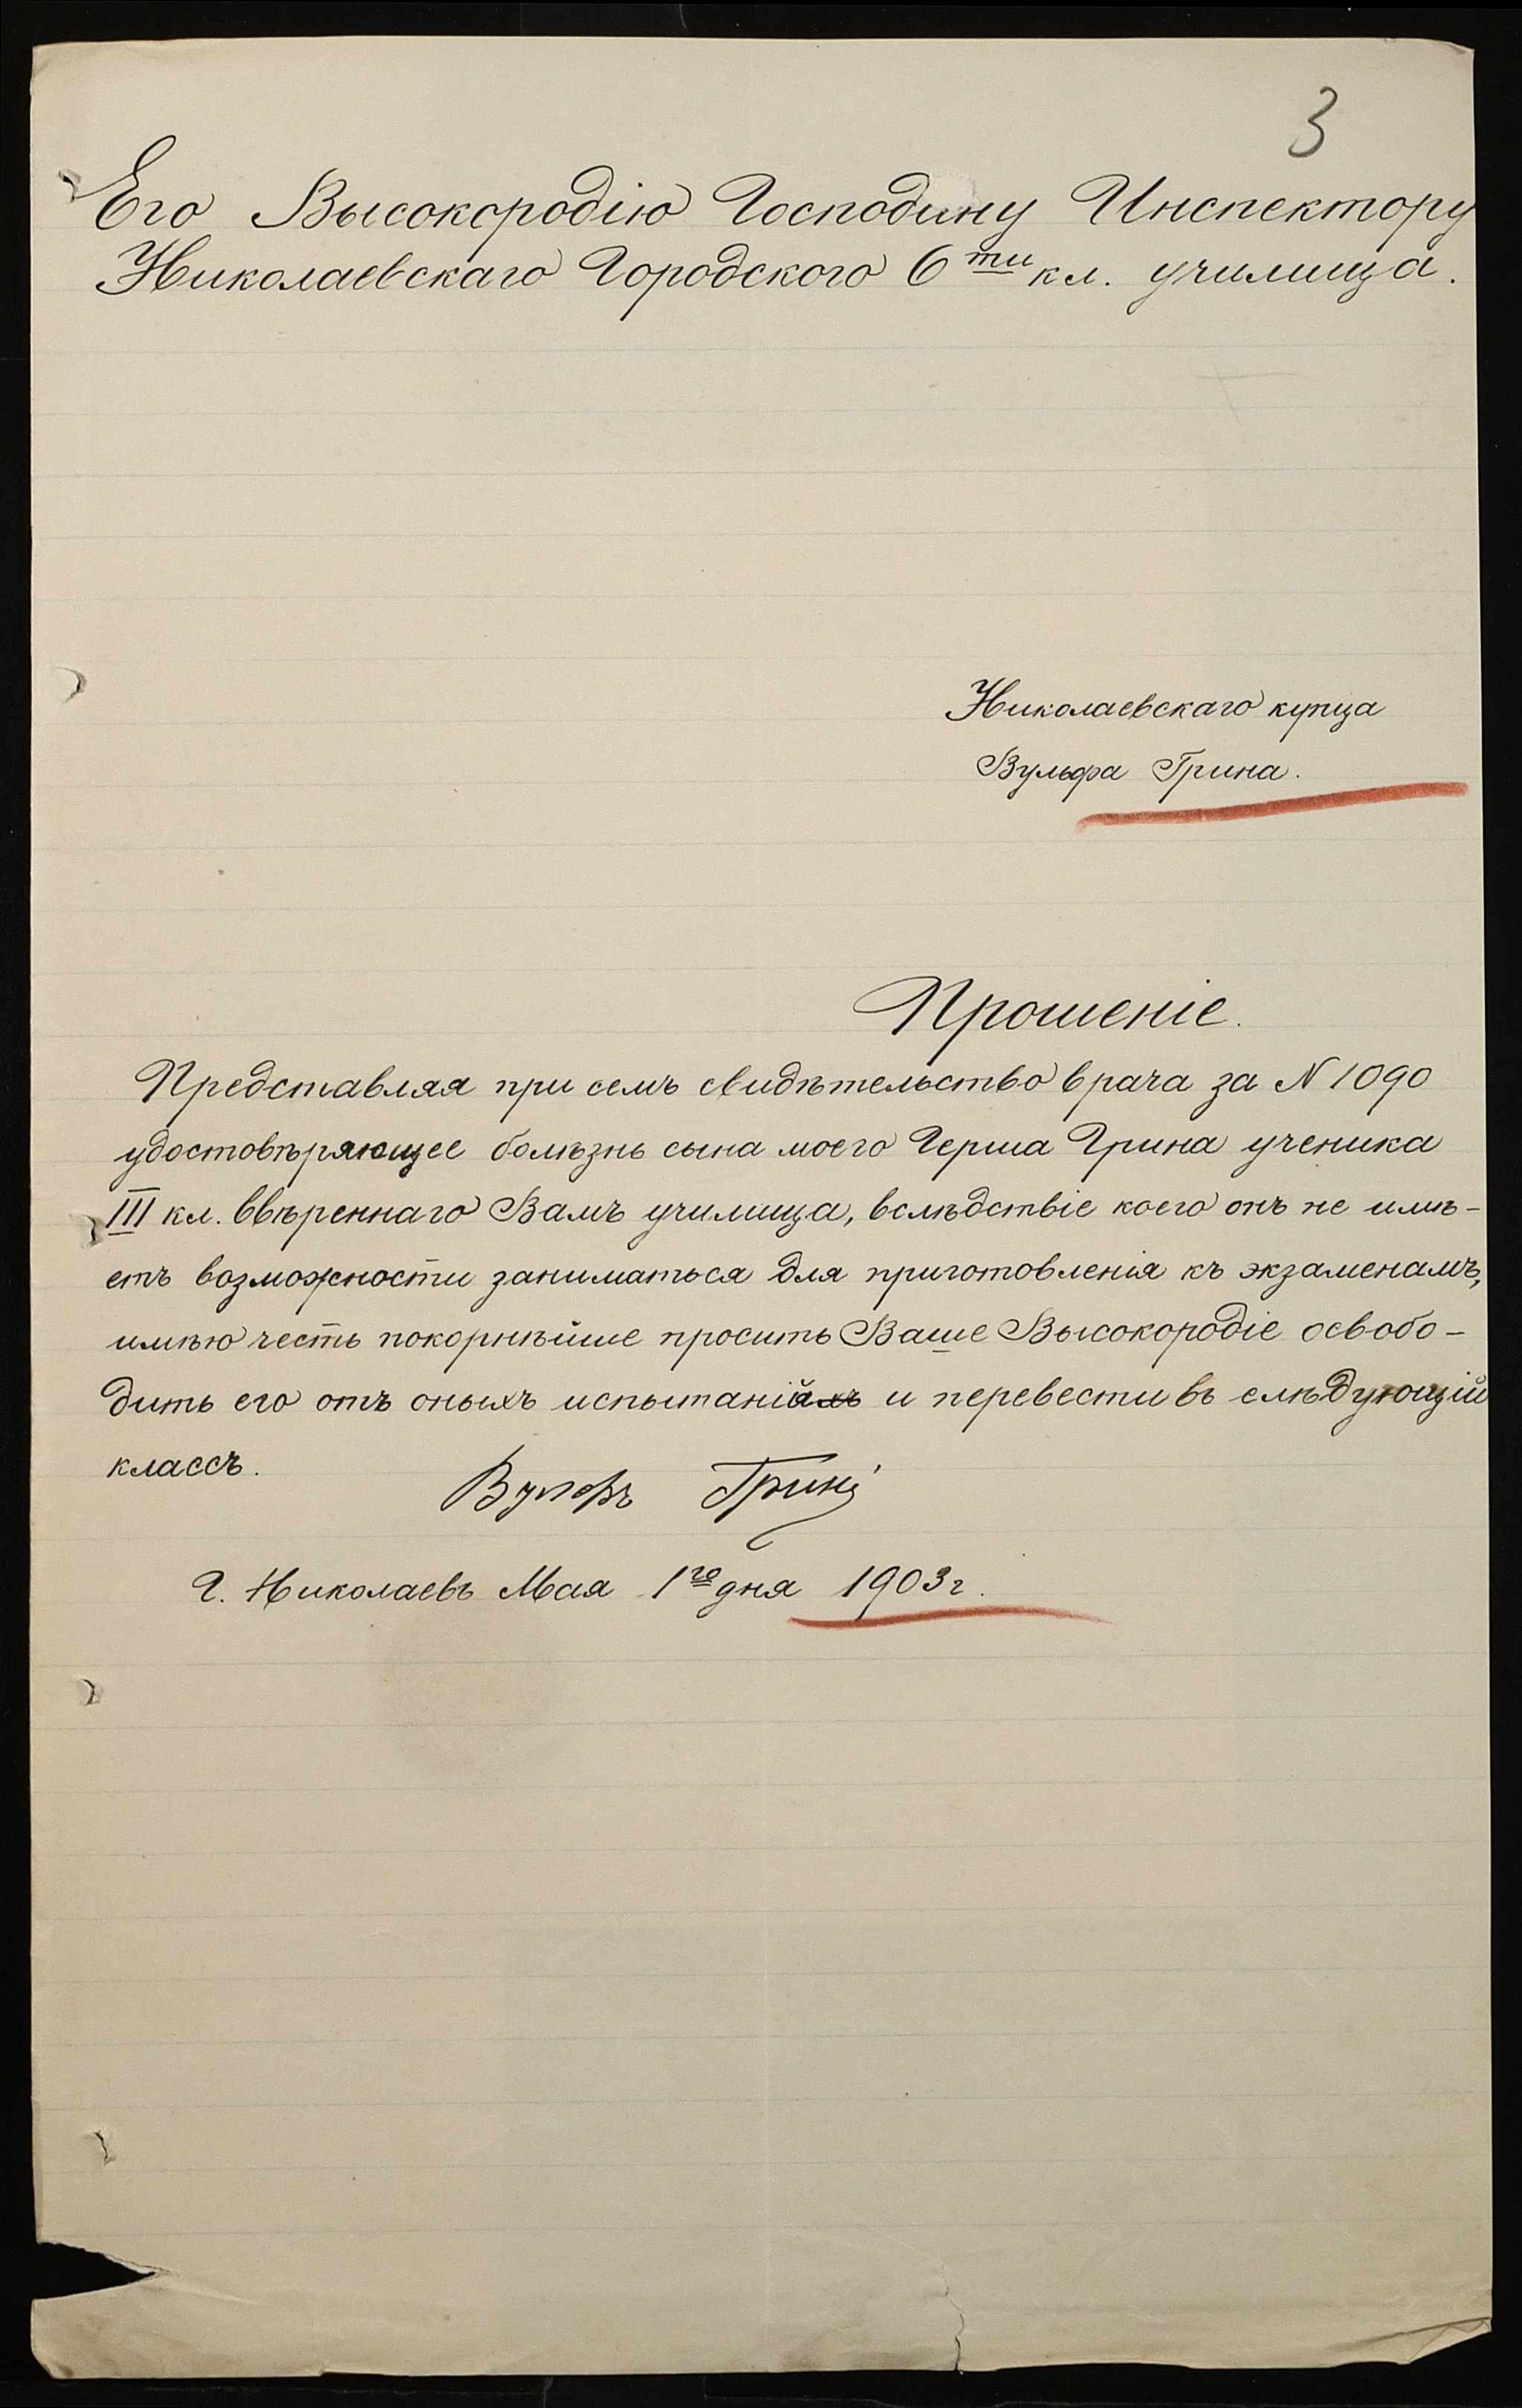 3
Его Высокородію Господину Инспектору
Николаевскаго Городского 6ти кл. училища.
Николаевскаго купца
Вульфа Грина.
Прошеніе.
Представляя при семъ свидѣтельство врача за N 1090
удостовѣряющее болѣзнь сына моего Герша Грина ученика
III кл. ввѣреннаго Вамъ училища, вслѣдствіе коего онъ не имѣ-
етъ возможности заниматься для приготовленія къ экзаменамъ,
имѣю честь покорнѣйше просить Ваше Высокородіе освобо-
дить его отъ оныхъ испытаній и перевести въ слѣдующій
классъ.
Вульфъ Гринъ
Г. Николаевъ Мая 1го дня 1903 г.